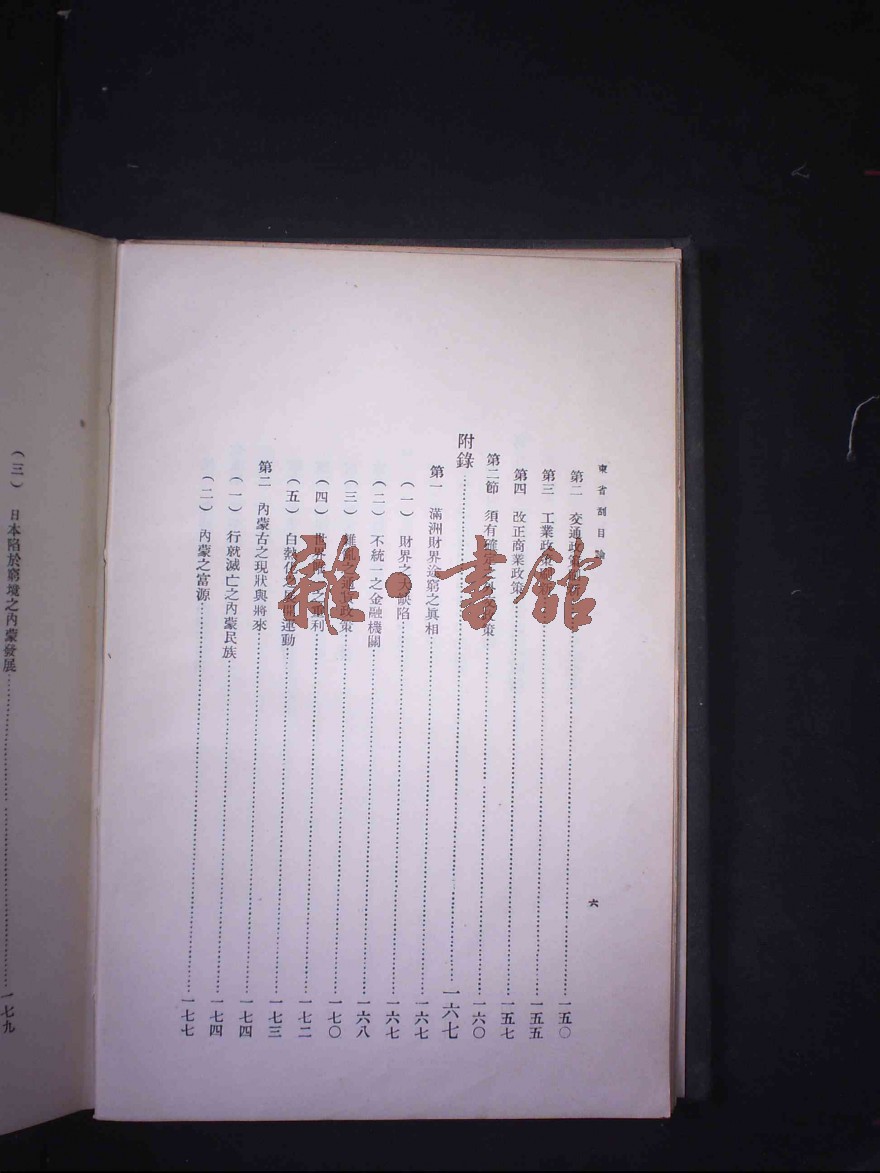 東省刮目論
第二 交通政策……一五〇
第三 工業政策……一五五
第四 改正商業政策……一五七
第二節 須有 政策……一六〇
附錄……一六七
第一 滿洲財界途窮之眞相……一六七
(一) 財界之大缺陷……一六七
(二) 不統一之金融機關……一六八
(三) 雜亂之通貨政策……一七〇
(四) 世界 之 利……一七二
(五) 白熱化 開運動……一七三
第二 內蒙古之現狀與將來……一七四
(一) 行就滅亡之內蒙民族……一七四
(二) 內蒙之富源……一七七
六
(三) 日本陷於窮境之內蒙發展……一七九
雜·書館